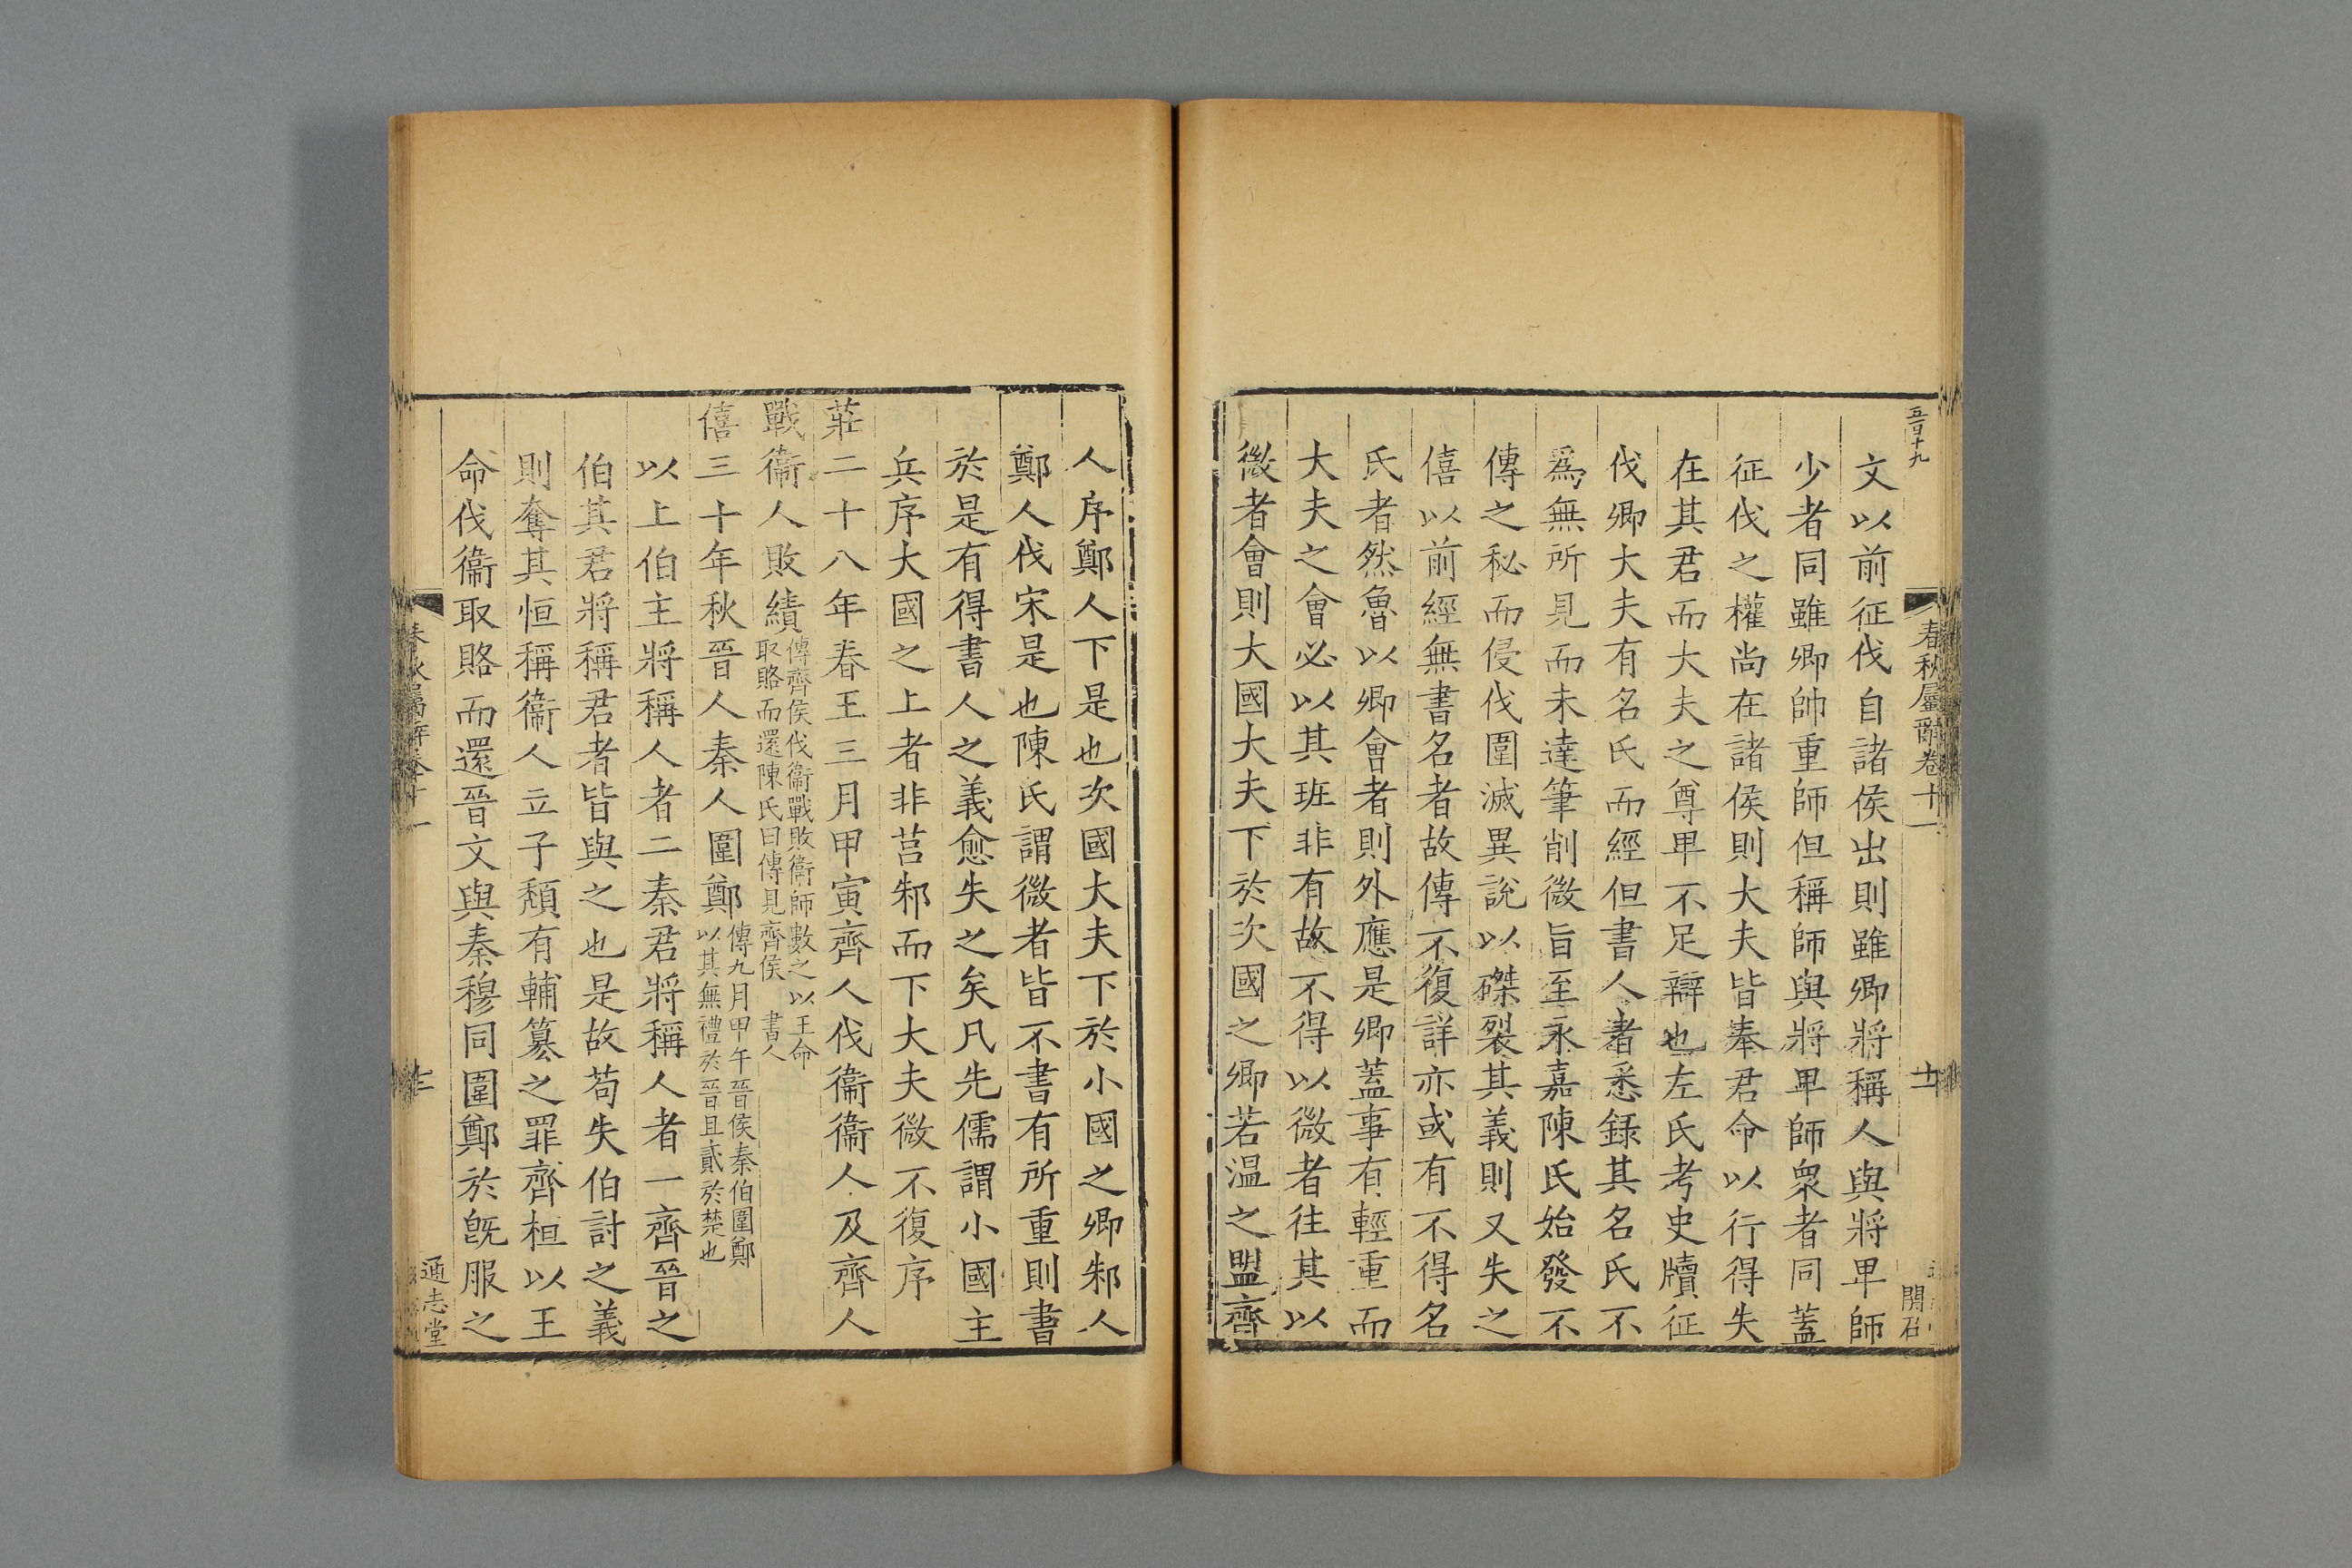 五百十九
春秋屬辭卷十一
十一
開召
文以前征伐自諸侯出則雖卿將稱人與將卑師
少者同雖卿帥重師但稱師與將卑師衆者同蓋
征伐之權尚在諸侯則大夫皆奉君命以行得失
在其君而大夫之尊卑不足辯也左氏考史牘征
伐卿大夫有名氏而經但書人者悉錄其名氏不
爲無所見而未達筆削微旨至永嘉陳氏始發不
傳之秘而侵伐圍滅異說以磔裂其義則又失之
僖以前經無書名者故傳不復詳亦或有不得名
氏者然魯以卿會者則外應是卿蓋事有輕重而
大夫之會必以其班非有故不得以微者往其以
微者會則大國大夫下於次國之卿若温之盟齊
人序鄭人下是也次國大夫下於小國之卿邾人
鄭人伐宋是也陳氏謂微者皆不書有所重則書
於是有得書人之義愈失之矣凡先儒謂小國主
兵序大國之上者非莒邾而下大夫微不復序
莊二十八年春王三月甲寅齊人伐衞衞人及齊人
戰衞人敗績傳齊侯伐衞戰敗衞師數之以王命
取賂而還陳氏曰傳見齊侯書人
僖三十年秋晉人秦人圍鄭傳九月甲午晉侯秦伯圍鄭
以其無禮於晉且貳於楚也
以上伯主將稱人者二秦君將稱人者一齊晉之
伯其君將稱君者皆與之也是故苟失伯討之義
則奪其恒稱衞人立子頹有輔簒之罪齊桓以王
命伐衞取賂而還晉文與秦穆同圍鄭於旣服之
春秋屬辭卷十一
通志堂